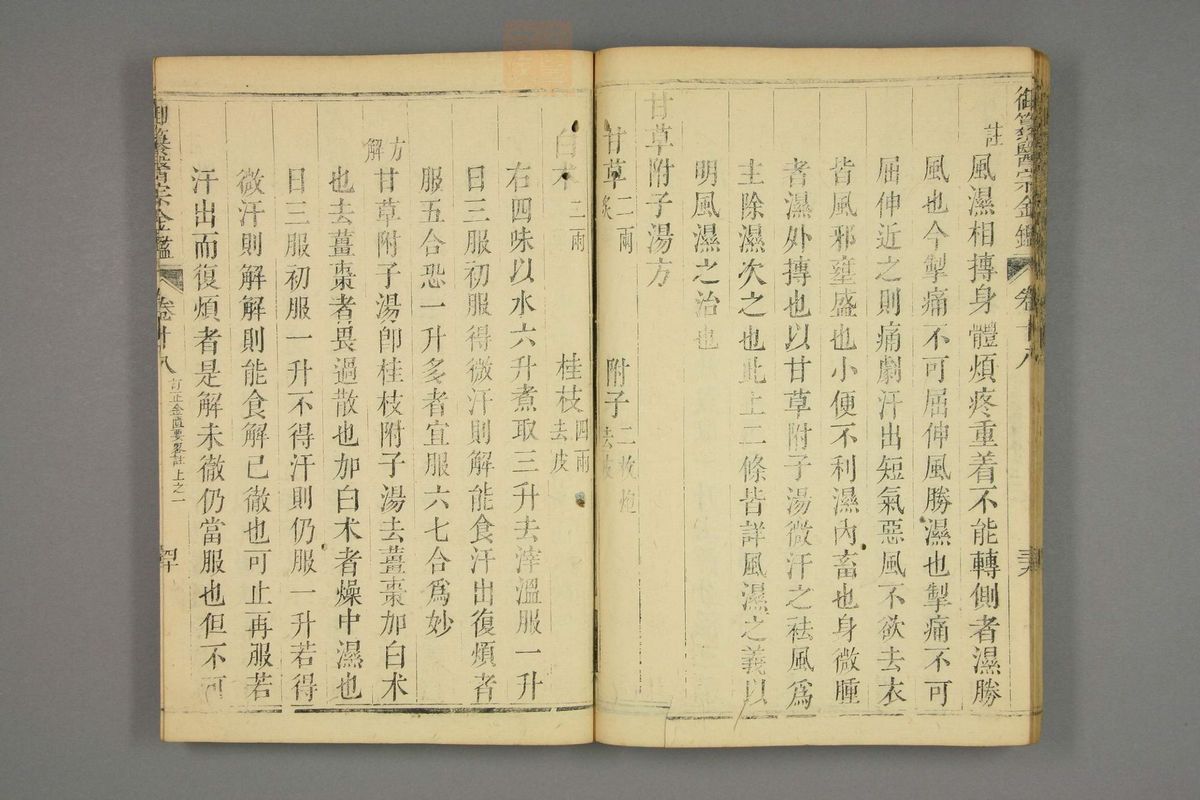 御纂醫宗金鑑 卷十八 三九
註
風濕相摶身體煩疼重着不能轉側者濕勝
風也今掣痛不可屈伸風勝濕也掣痛不可
屈伸近之則痛劇汗出短氣惡風不欲去衣
皆風邪壅盛也小便不利濕內畜也身微腫
者濕外摶也以甘草附子湯微汗之祛風爲
主除濕次之也此上二條皆詳風濕之義以
明風濕之治也
甘草附子湯方
甘草二兩炙 附子二枚炮去皮
白术二兩 桂枝四兩去皮
右四味以水六升煮取三升去滓溫服一升
日三服初服得微汗則解能食汗出復煩者
服五合恐一升多者宜服六七合爲妙
方解
甘草附子湯卽桂枝附子湯去薑棗加白术
也去薑棗者畏過散也加白术者燥中濕也
日三服初服一升不得汗則仍服一升若得
微汗則解解則能食解已徹也可止再服若
汗出而復煩者是解未徹仍當服也但不可
御纂醫宗金鑑 卷十八 訂正金匱要畧註上之一 四十